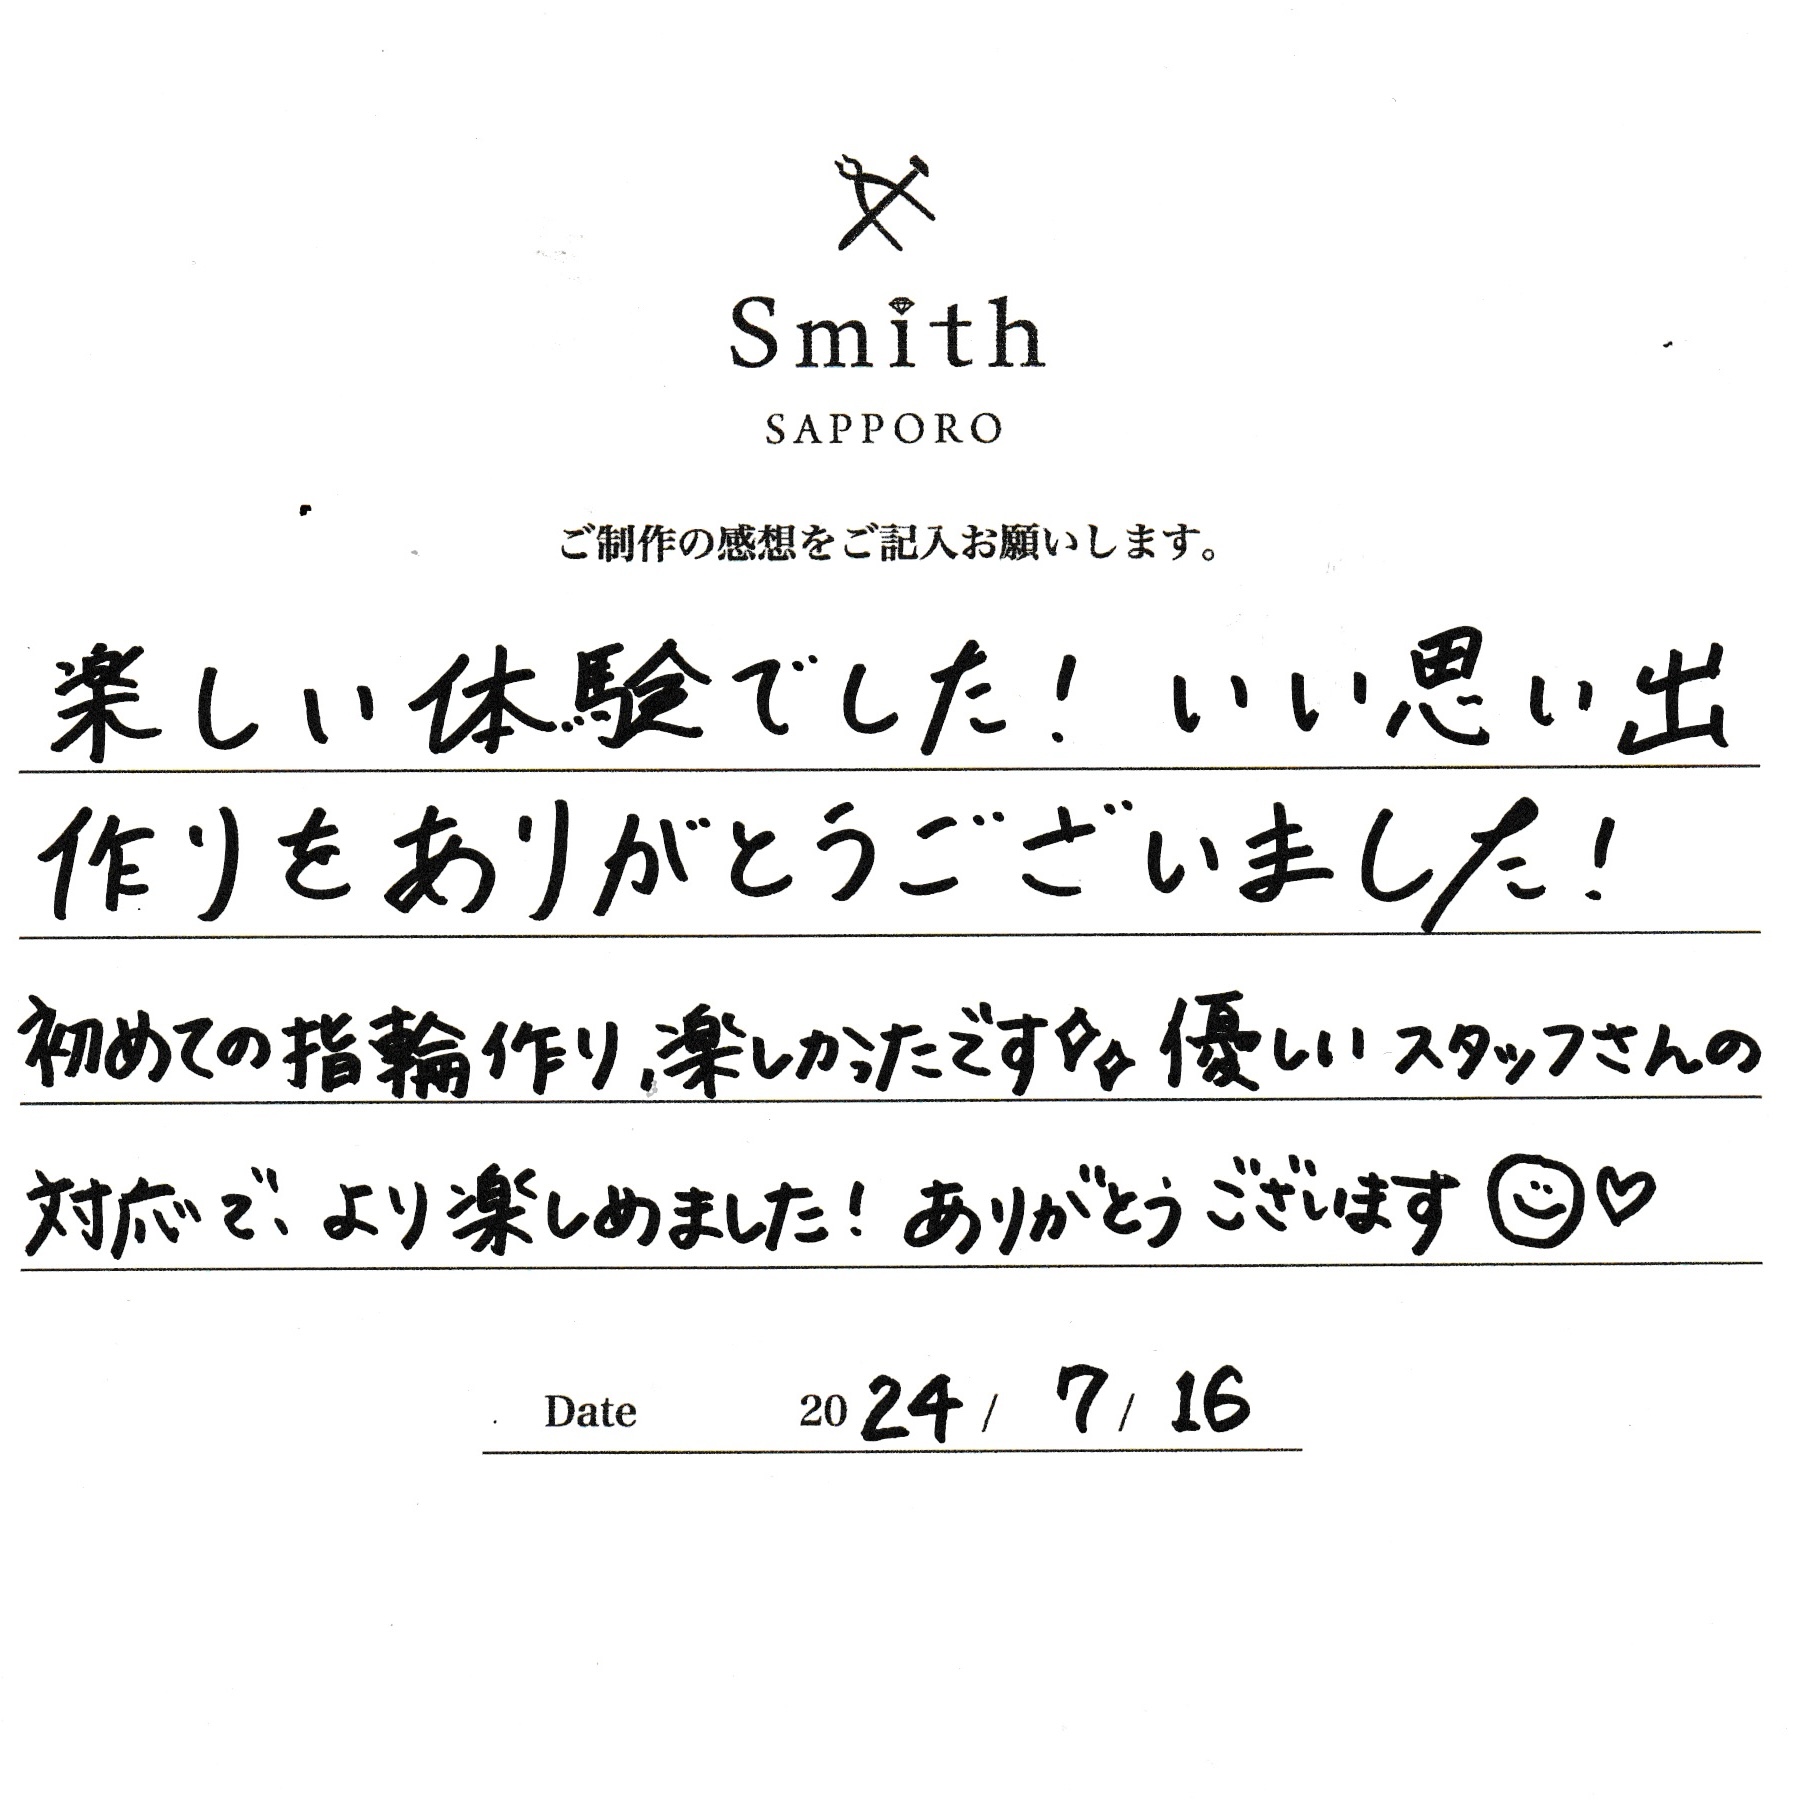 Smith
SAPPORO
ご制作の感想をご記入お願いします。
楽しい体験でした！ いい思い出
作りをありがとうございました！
初めての指輪作り、楽しかったです✧✧ 優しいスタッフさんの
対応で、より楽しめました！ ありがとうございます☺♡
Date 2024 / 7 / 16